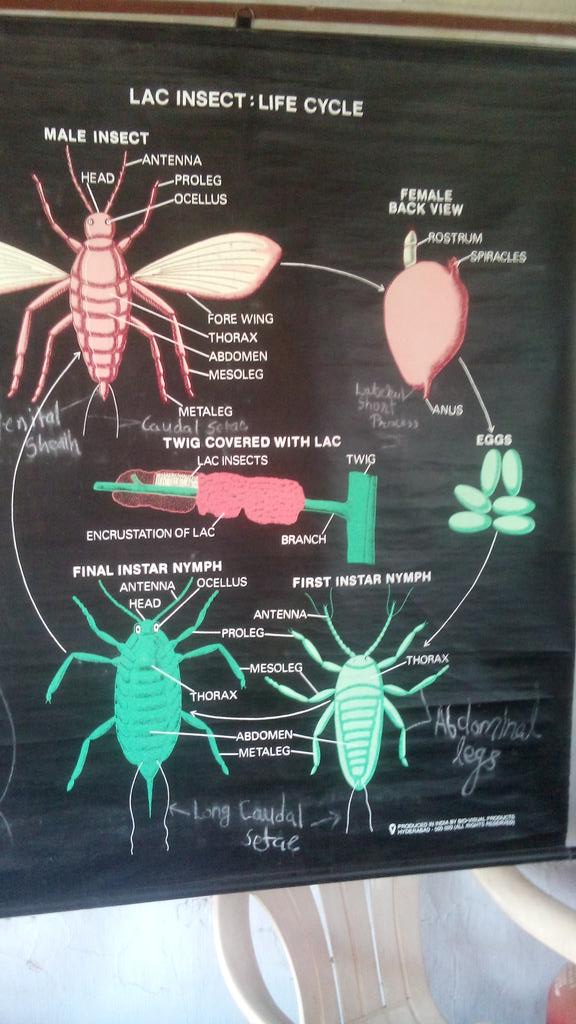 LAC INSECT : LIFE CYCLE
MALE INSECT
ANTENNA
HEAD
PROLEG
OCELLUS
FORE WING
THORAX
ABDOMEN
MESOLEG
METALEG
Genital
Sheath
Caudal setae
FEMALE
BACK VIEW
ROSTRUM
SPIRACLES
Short
Process
ANUS
EGGS
TWIG COVERED WITH LAC
LAC INSECTS
TWIG
ENCRUSTATION OF LAC
BRANCH
FINAL INSTAR NYMPH
ANTENNA
OCELLUS
HEAD
FIRST INSTAR NYMPH
ANTENNA
PROLEG
MESOLEG
THORAX
THORAX
ABDOMEN
METALEG
Abdominal
legs
Long Caudal
setae
PRODUCED IN INDIA BY BIO-VISUAL PRODUCTS
HYDERABAD - 500 020 (ALL RIGHTS RESERVED)